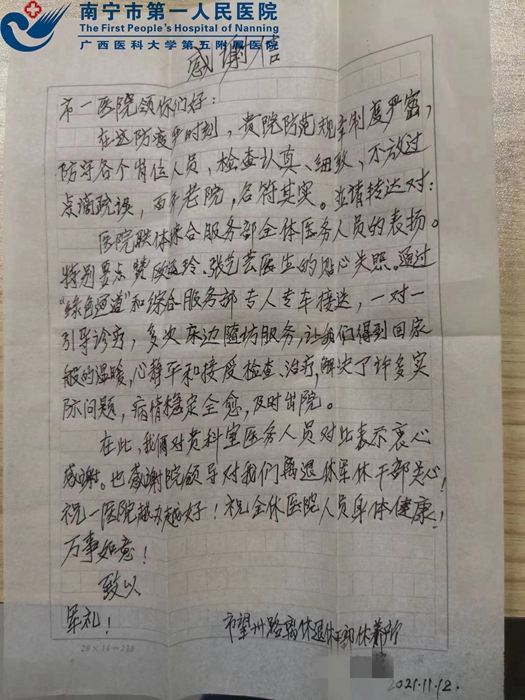 南宁市第一人民医院
The First People's Hospital of Nanning
广西医科大学第五附属医院
感谢信
市一医院领你们好：
在这防疫步时刻，贵院防范规章制度严密，
防守各个岗位人员，检查认真、细致，不放过
点滴疏误，百年老院，名符其实。並请转达对：
医院联体综合服务部全体医务人员的表扬。
特别要点赞欧 玲、张 芸医生的贴心关照。通过
“绿色通道”和综合服务部专人专车接送，一对一
引导诊疗，多次床边随访服务，让我们得到回家
般的温暖，心静平和接受检查、治疗，解决了许多实
际问题，病情稳定全愈，及时出院。
在此，我俩对贵科室医务人员对比表示衷心
感谢。也感谢院领导对我们离退休军休干部关心！
祝一医院越办越好！祝全体医院人员身体健康！
万事如意！
致以
军礼！
市望州路离休退休干部休养所
2021.11.12.